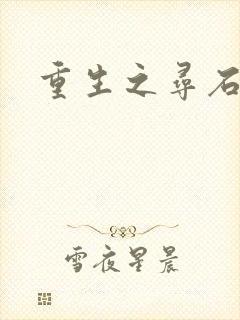 重生之寻石
雪夜星晨